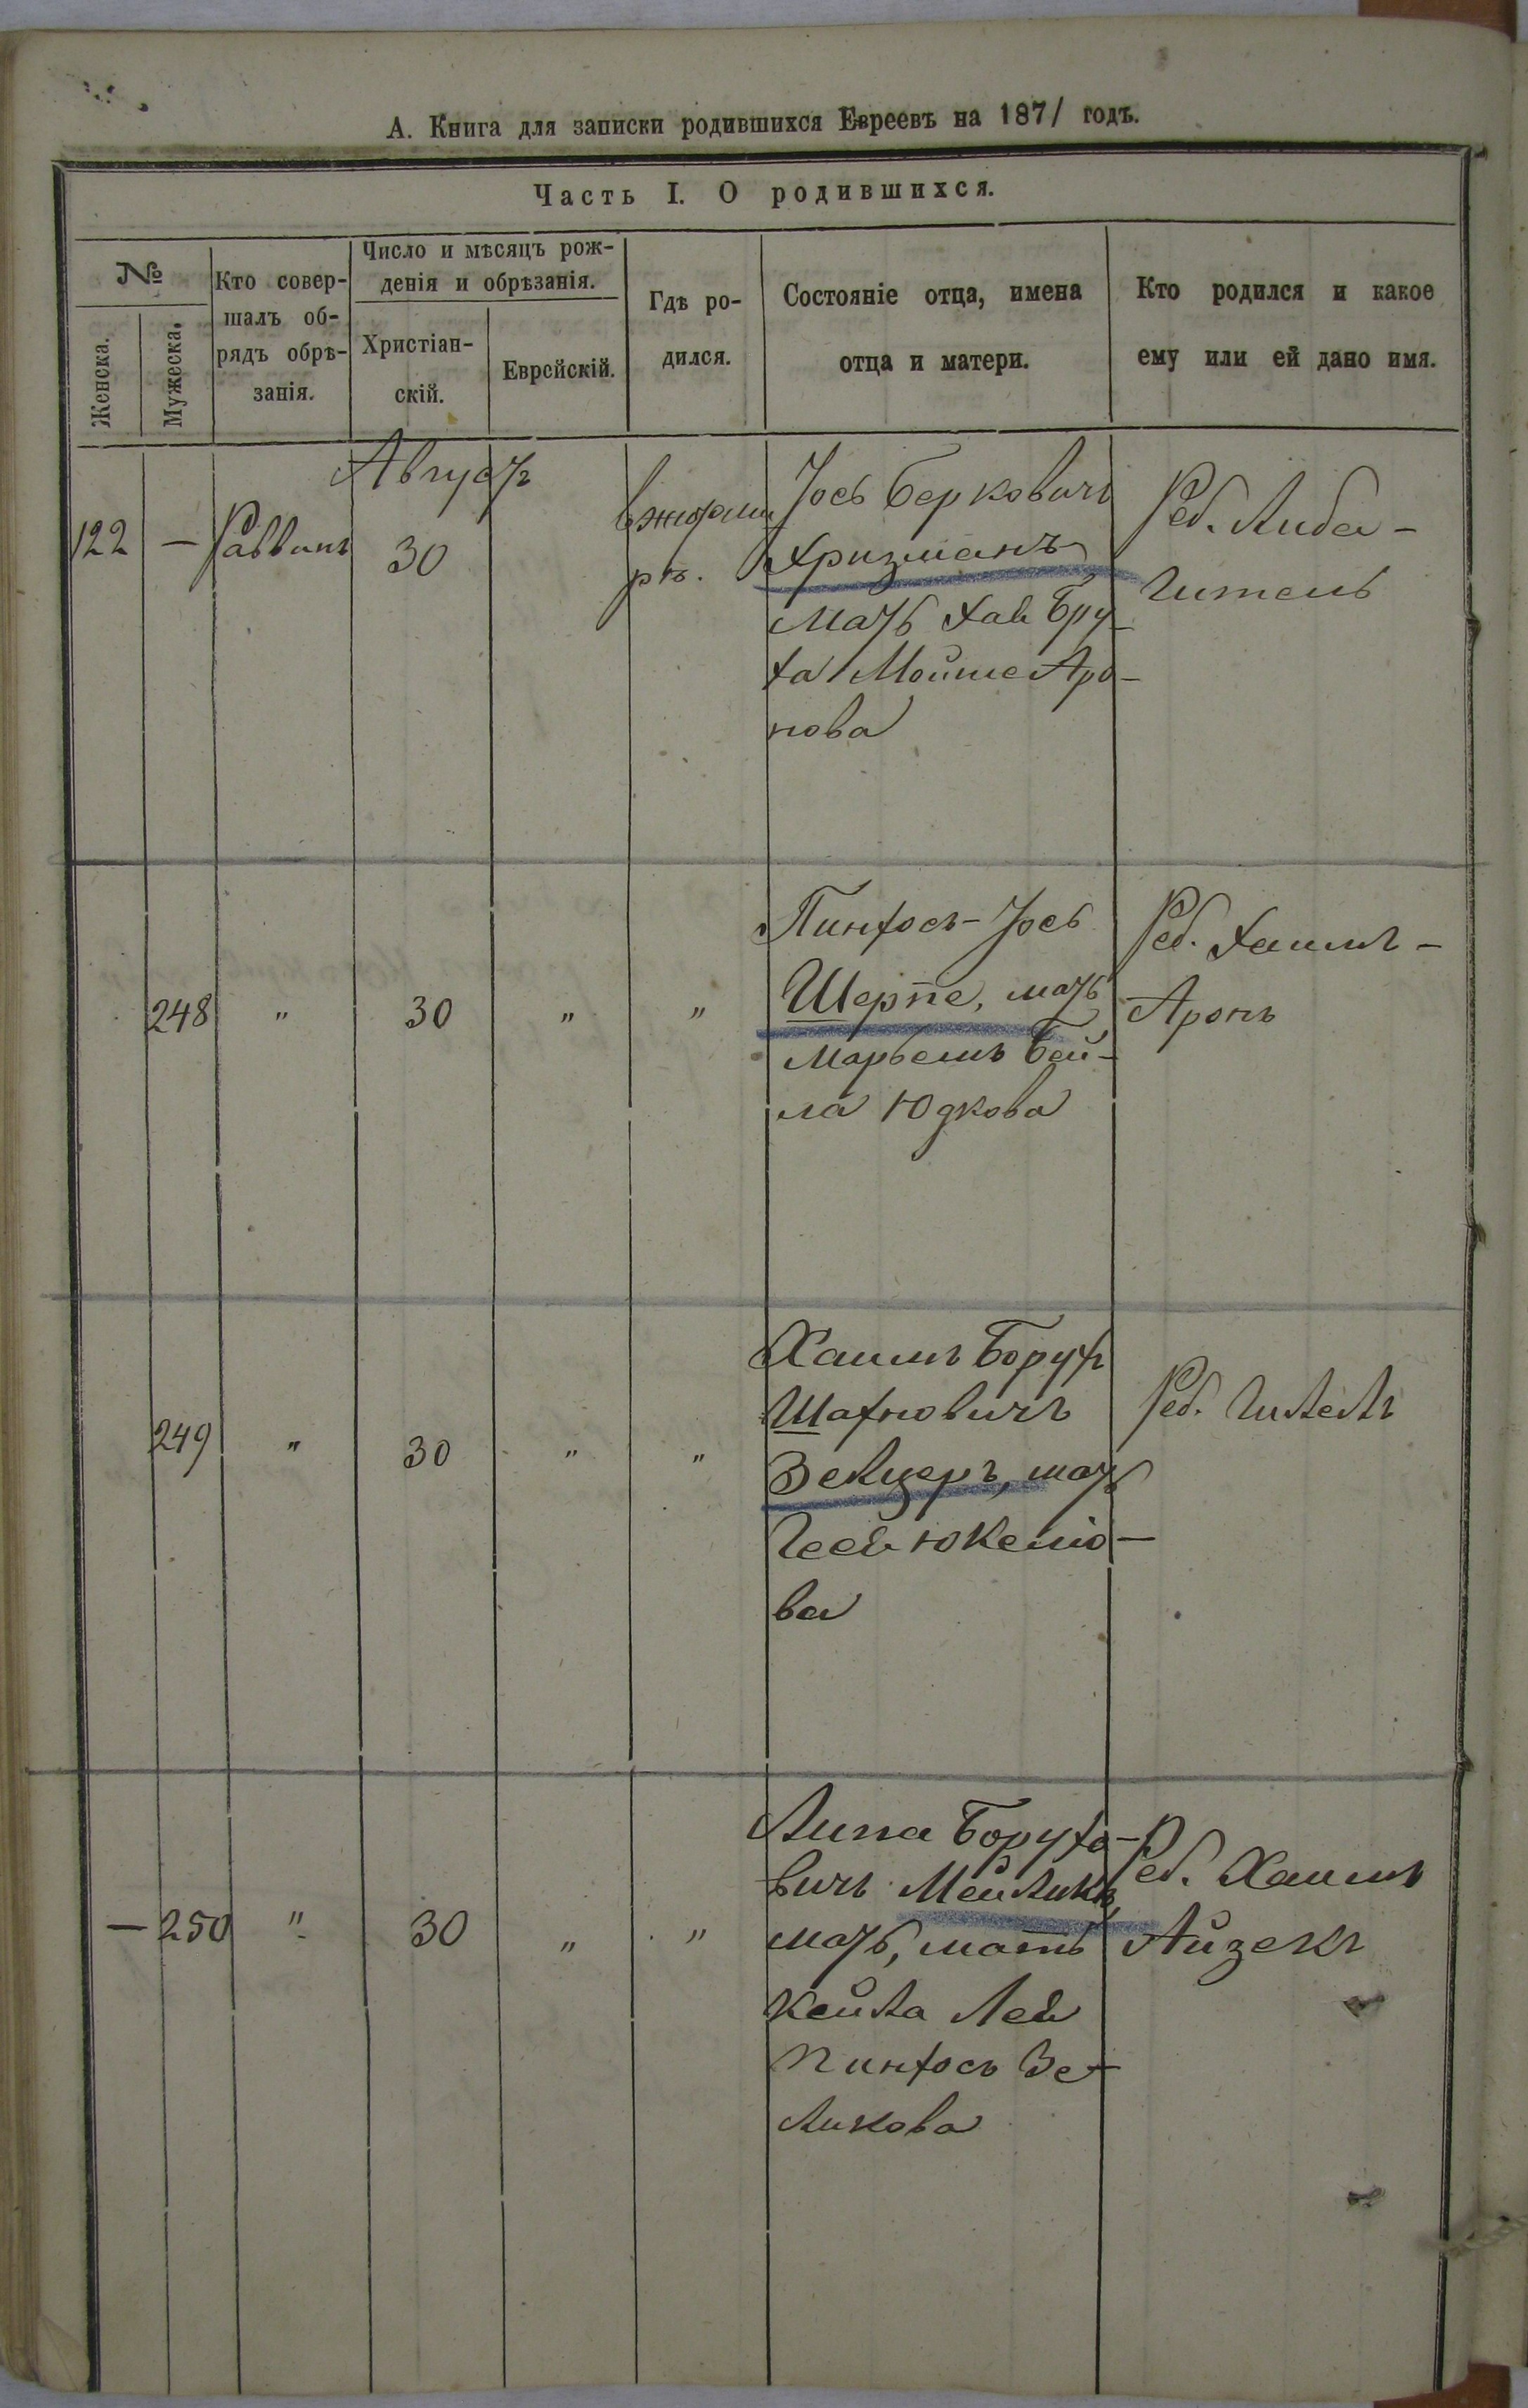 А. Книга для записки родившихся Евреевъ на 1871 годъ.
Часть I. О родившихся.
№
Женска.
Мужеска.
Кто совер-
шалъ об-
рядъ обрѣ-
занія.
Число и мѣсяцъ рож-
денія и обрѣзанія.
Христіан-
скій.
Еврейскій.
Гдѣ ро-
дился.
Состояніе отца, имена
отца и матери.
Кто родился и какое
ему или ей дано имя.
Августъ
122 — Раввинъ 30
в Житоми
рѣ.
Іось Берковичъ
Хризманъ
мать Хая Бру-
ха Мойше Аро-
нова
Реб. Либа-
Гитель
248 " 30 " "
Пинхосъ-Іось
Шерпе, мать
Марьемъ Бей-
ла Юдкова
Реб. Хаимъ-
Аронъ
249 " 30 " "
Хаимъ Борухъ
Шахновичъ
Зельцеръ, мать
ва
Реб.
— 250 " 30 " "
Липа Борухо-
вичъ Мейликъ,
мать, мать
Кейла Лея
Пинхосъ Зе-
ликова
Реб. Хаимъ
Айзекъ